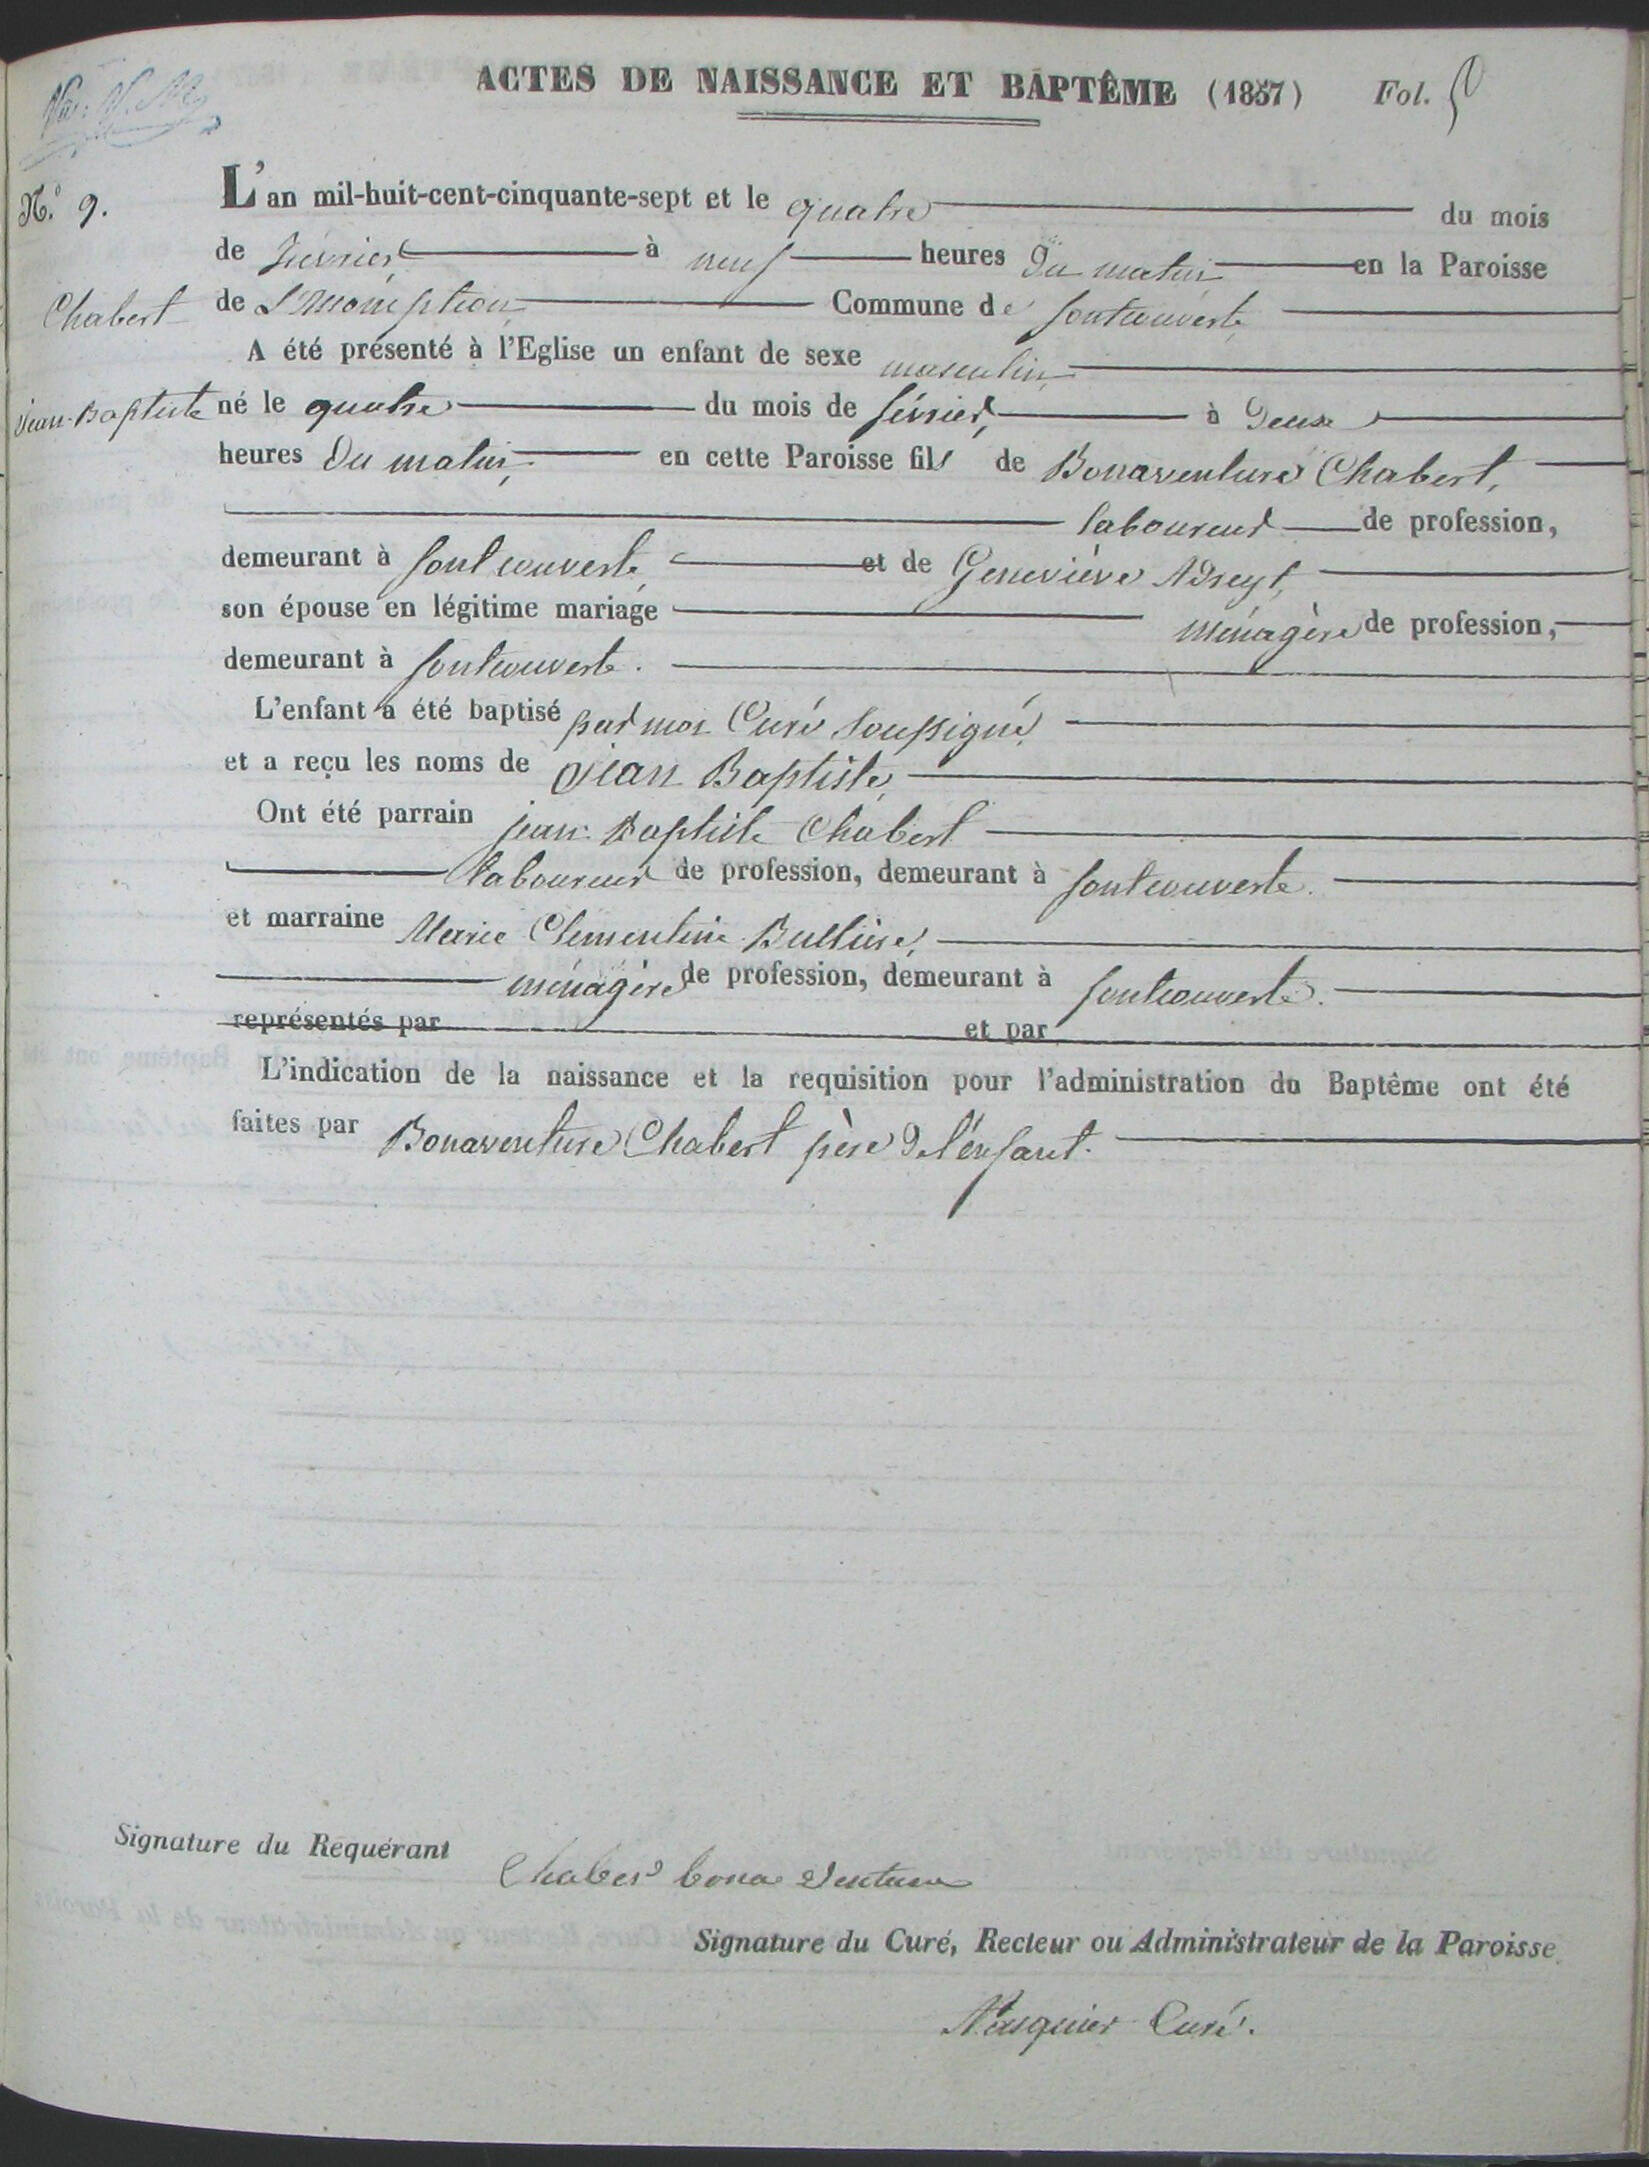 ACTES DE NAISSANCE ET BAPTÊME (1857) Fol. 5
N.° 9.
L'an mil-huit-cent-cinquante-sept et le quatre du mois
de février à neuf heures du matin en la Paroisse
Chabert
de L'Assomption Commune de fontcouverte
A été présenté à l'Eglise un enfant de sexe masculin
Jean-Baptiste
né le quatre du mois de février, à deux
heures du matin, en cette Paroisse fils de Bonaventure Chabert,
laboureur de profession,
demeurant à fontcouverte, et de Geneviève
son épouse en légitime mariage ménagère de profession,
demeurant à fontcouverte.
L'enfant a été baptisé par moi Curé soussigné,
et a reçu les noms de Jean Baptiste,
Ont été parrain jean-Baptiste Chabert
laboureur de profession, demeurant à fontcouverte.
et marraine Marie Clementine
ménagère de profession, demeurant à fontcouverte.
représentés par et par
L'indication de la naissance et la requisition pour l'administration du Baptême ont été
faites par Bonaventure Chabert père de l'enfant.
Signature du Requérant
Chaber bona venture
Signature du Curé, Recteur ou Administrateur de la Paroisse
Curé.